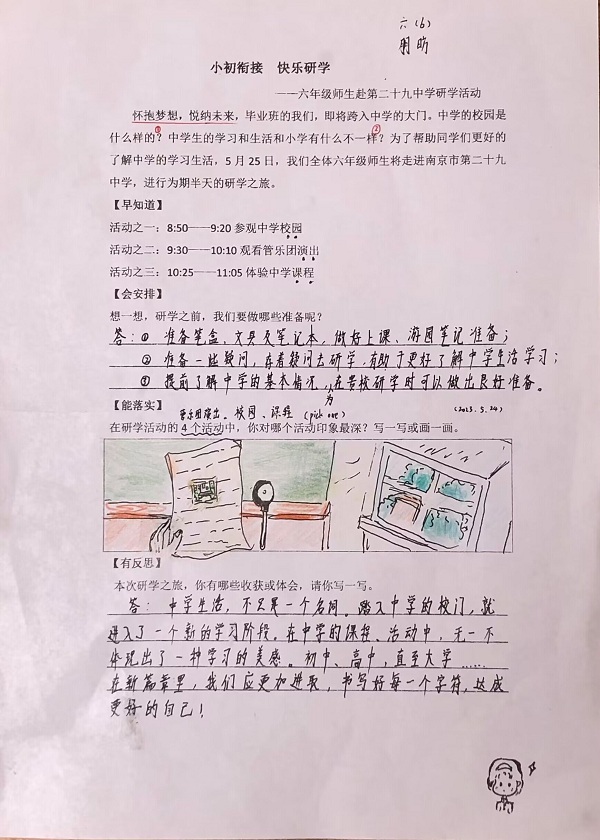 六（6）
小初衔接　快乐研学
——六年级师生赴第二十九中学研学活动
怀抱梦想，悦纳未来，毕业班的我们，即将跨入中学的大门。中学的校园是
什么样的？中学生的学习和生活和小学有什么不一样？为了帮助同学们更好的
了解中学的学习生活，5 月 25 日，我们全体六年级师生将走进南京市第二十九
中学，进行为期半天的研学之旅。
【早知道】
活动之一：8:50——9:20 参观中学校园
活动之二：9:30——10:10 观看管乐团演出
活动之三：10:25——11:05 体验中学课程
【会安排】
想一想，研学之前，我们要做哪些准备呢？
答：① 准备笔盒、文具及笔记本，做好上课、游园笔记准备；
② 准备一些疑问，存着疑问去研学，有助于更好了解中学生活学习；
③ 提前了解中学的基本情况，在贵校研学时可以做出良好准备。
【能落实】
管乐团演出、校园、课程 (pick one)
(2023.5.24)
在研学活动的 4 个活动中，你对哪个活动印象最深？写一写或画一画。
【有反思】
本次研学之旅，你有哪些收获或体会，请你写一写。
答：中学生活，不只是一个名词。踏入中学的校门，就
进入了一个新的学习阶段。在中学的课程、活动中，无一不
体现出了一种学习的美感。初中、高中，直至大学……
在新篇章里，我们应更加进取，书写好每一个字符，达成
更好的自己！